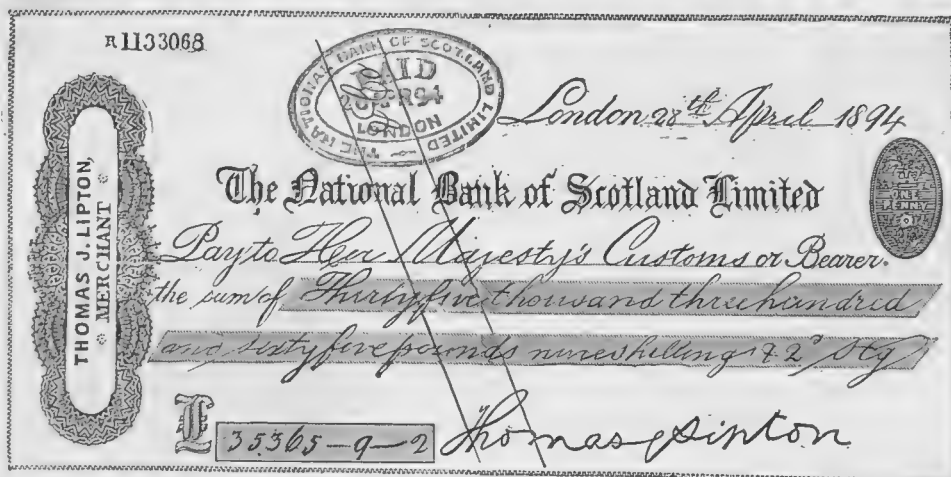 R1133068
THE NATIONAL BANK OF SCOTLAND LIMITED
PAID
LONDON
London 28th April 1894
THOMAS J. LIPTON,
MERCHANT
The National Bank of Scotland Limited
Pay to Her Majesty's Customs or Bearer.
the sum of Thirty five thousand three hundred
and sixty five pounds nine shilling & 2d Stg
£ 35365-9-2 Thomas J Lipton